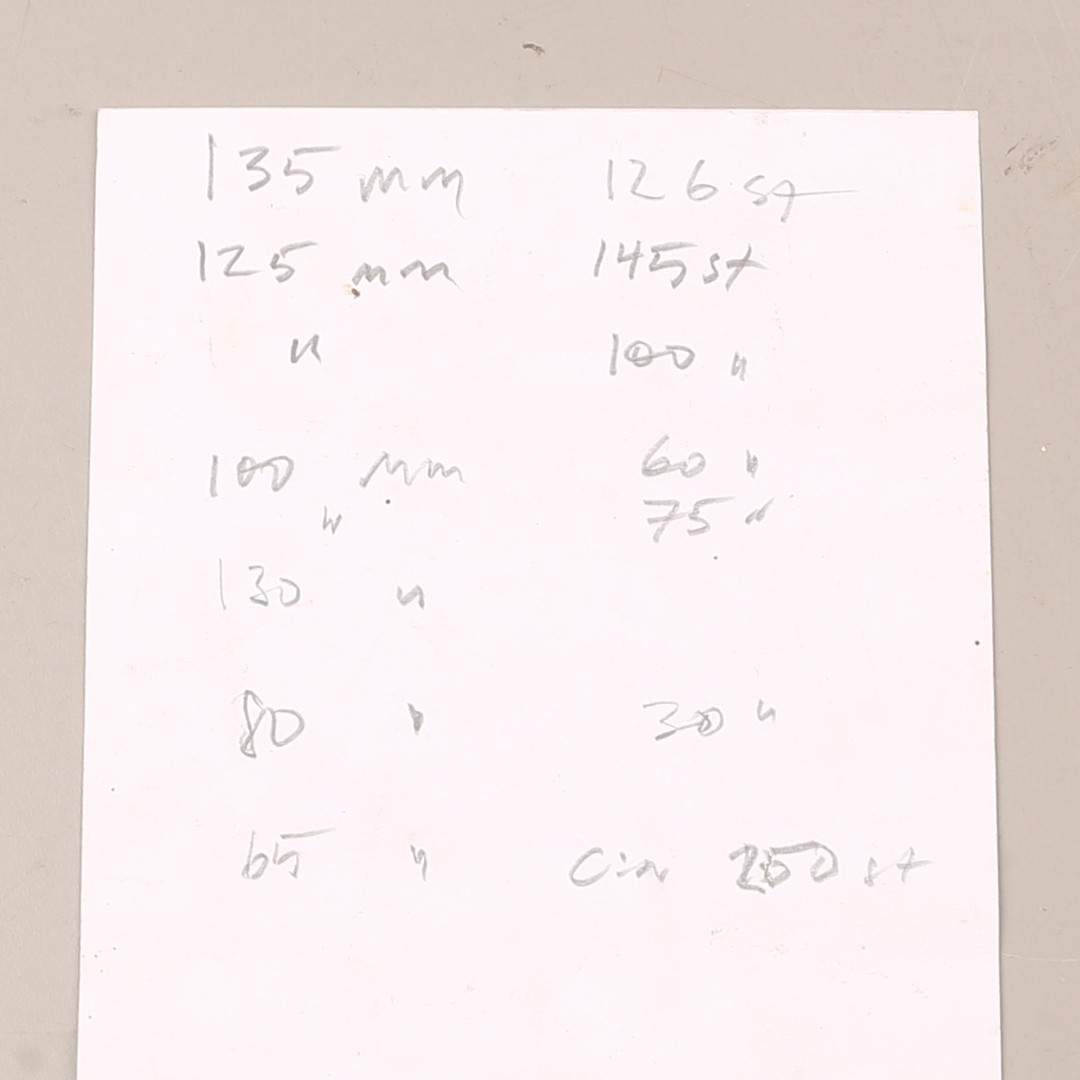 135 mm 126 st
125 mm 145 st
" 100 "
100 mm 60 "
" 75 "
130 "
80 " 30 "
65 " 250 st